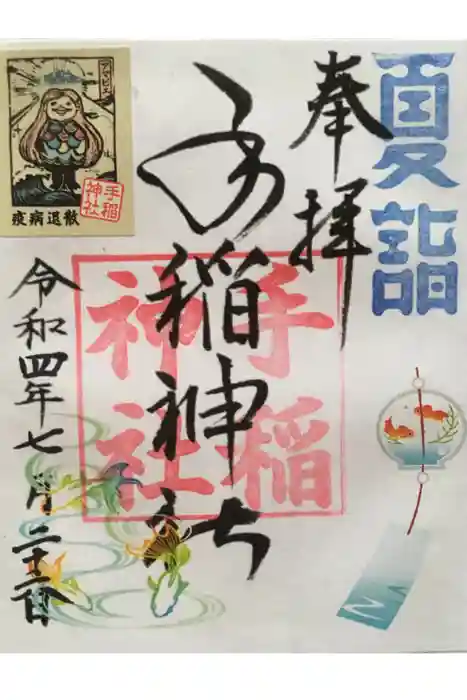 夏詣
奉拝
手稲神社
手稲
神社
令和四年七月二十二日
アマビエ
手稲
神社
疫病退散